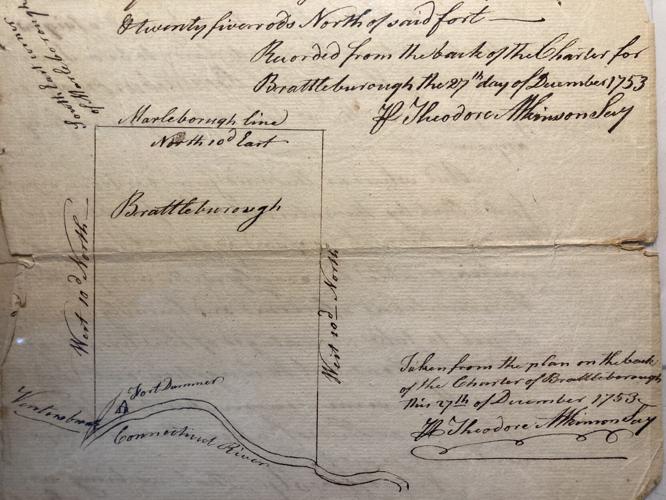 & twenty five rods North of said fort —
Recorded from the back of the Charter for
Brattleborough the 27th day of December 1753
Theodore Atkinson Secy
South East corner
of Marleborough
Marleborough line
North 10d East
Brattleborough
West 10d North
West 10d North
Fort Dummer
Connecticut River
Taken from the plan on the back
of the Charter of Brattleborough
this 27th of December 1753
Theodore Atkinson Secy